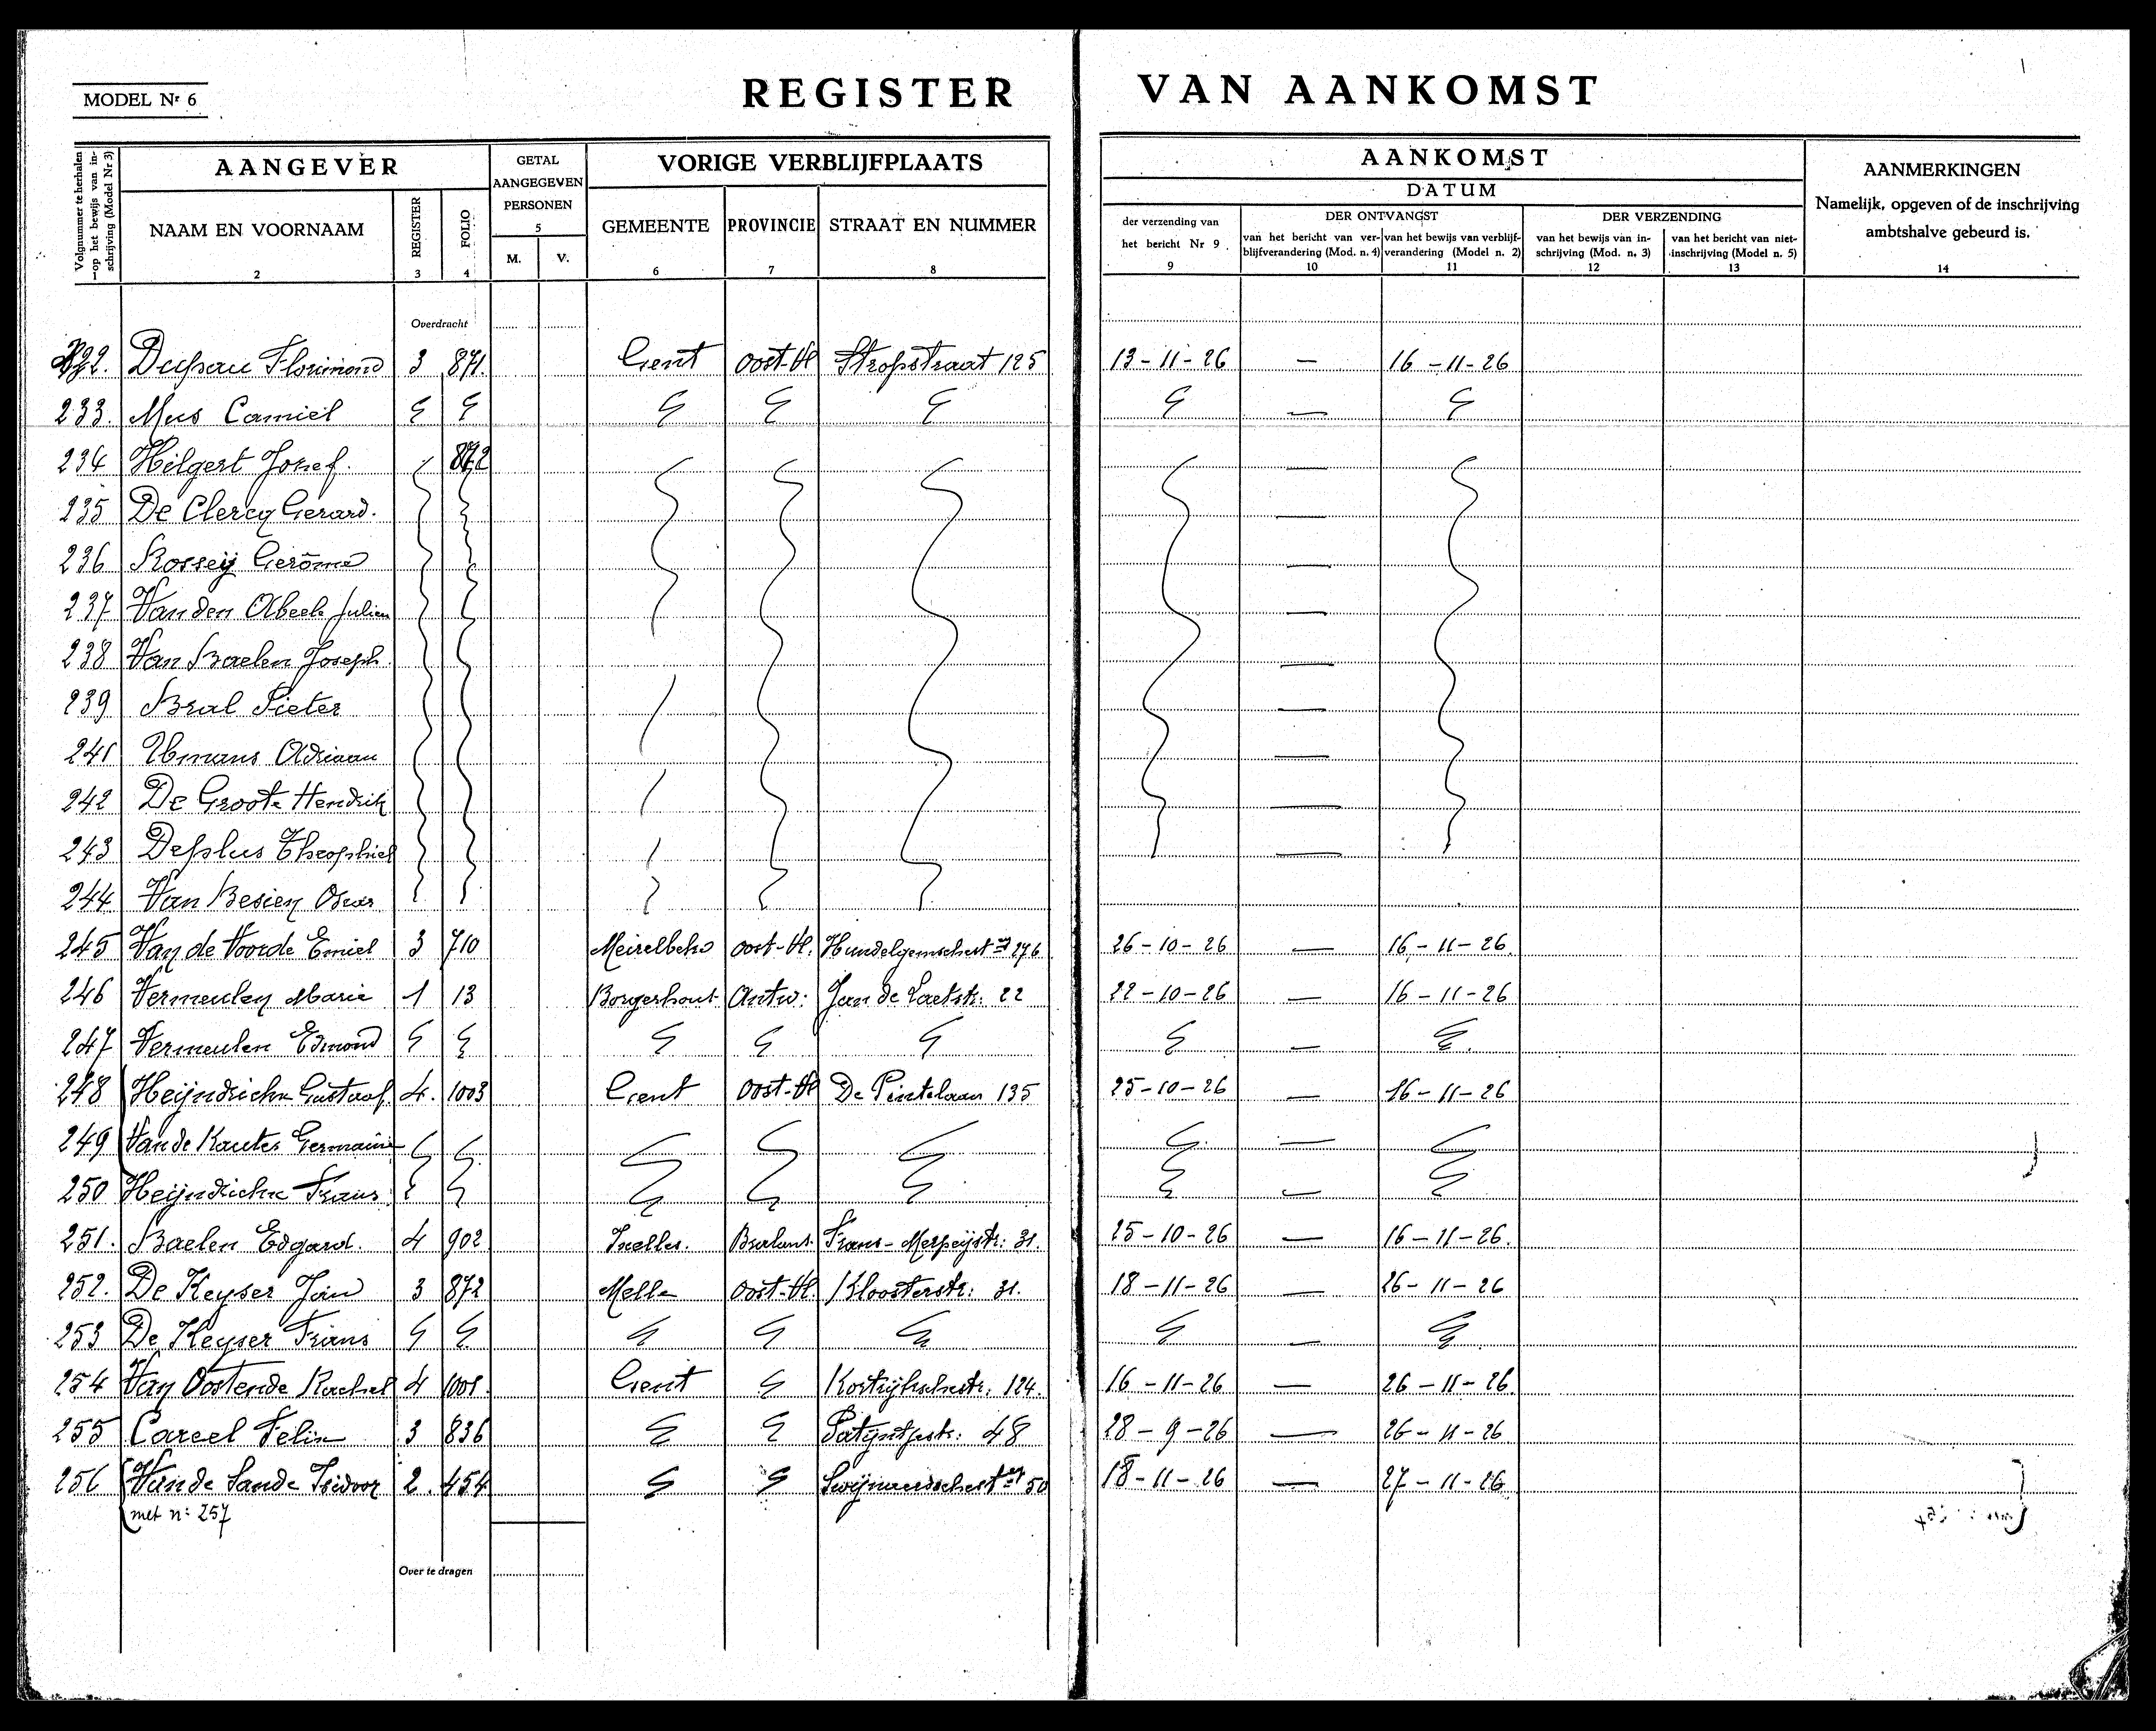 MODEL Nr 6
REGISTER VAN AANKOMST
Volgnummer te herhalen op het bewijs van inschrijving (Model Nr 3)
AANGEVER
NAAM EN VOORNAAM
2
REGISTER
3
FOLIO
4
GETAL
AANGEGEVEN
PERSONEN
5
M. V.
VORIGE VERBLIJFPLAATS
GEMEENTE
6
PROVINCIE
7
STRAAT EN NUMMER
8
AANKOMST
DATUM
der verzending van
het bericht Nr 9
9
DER ONTVANGST
van het bericht van ver-
blijfverandering (Mod. n. 4)
10
van het bewijs van verblijf-
verandering (Model n. 2)
11
DER VERZENDING
van het bewijs van in-
schrijving (Mod. n. 3)
12
van het bericht van niet-
inschrijving (Model n. 5)
13
AANMERKINGEN
Namelijk, opgeven of de inschrijving
ambtshalve gebeurd is.
14
Overdracht
Florimond 3 871. Gent Oost-Vl Stropstraat 125 13-11-26 — 16-11-26
233. Mus Camiel — —
234 Hilgert Jozef. 872 —
235 De Clercq Gerard. —
236 Rossey Gerôme —
237 Van den Abeele Julien —
238 Van Baelen Joseph. —
239 Bral Pieter —
241 Adriaan —
242 De Groote Hendrik —
243 Desplus Theophiel —
244 Van Besien Oscar
245 Van de Voorde Emiel 3 710 Meirelbeke Oost-Vl. Hundelgemschest wg 276 26-10-26 — 16-11-26.
246 Vermeulen Marie 1 13 Borgerhout Antw: Jan de Laetstr. 22 22-10-26 — 16-11-26
247 Vermeulen Edmond —
248 Heijndrickx Gustaaf 4. 1003 Gent Oost-Vl De Pintelaan 135 25-10-26 — 16-11-26
249 Van de Kauter Germaine —
250 Heijndrickx Frans —
251. Baelen Edgard. 4 902 Ixelles. Brabant. Frans-Merjeijstr: 31. 25-10-26 — 16-11-26.
252. De Keyser Jan 3 872 Melle Oost-Vl. Kloosterstr: 31. 18-11-26 — 26-11-26
253 De Keyser Frans —
254 Van Oostende Rachel 4 1001. Gent Kortrijkschestr. 124. 16-11-26 — 26-11-26.
255 Carcel Felix 3 836 Patijntjestr: 48 28-9-26 — 26-11-26
256 Van de Sande Isidoor 2. 454 Swijnaardschest wg 50 18-11-26 — 27-11-26
met n: 257
Over te dragen